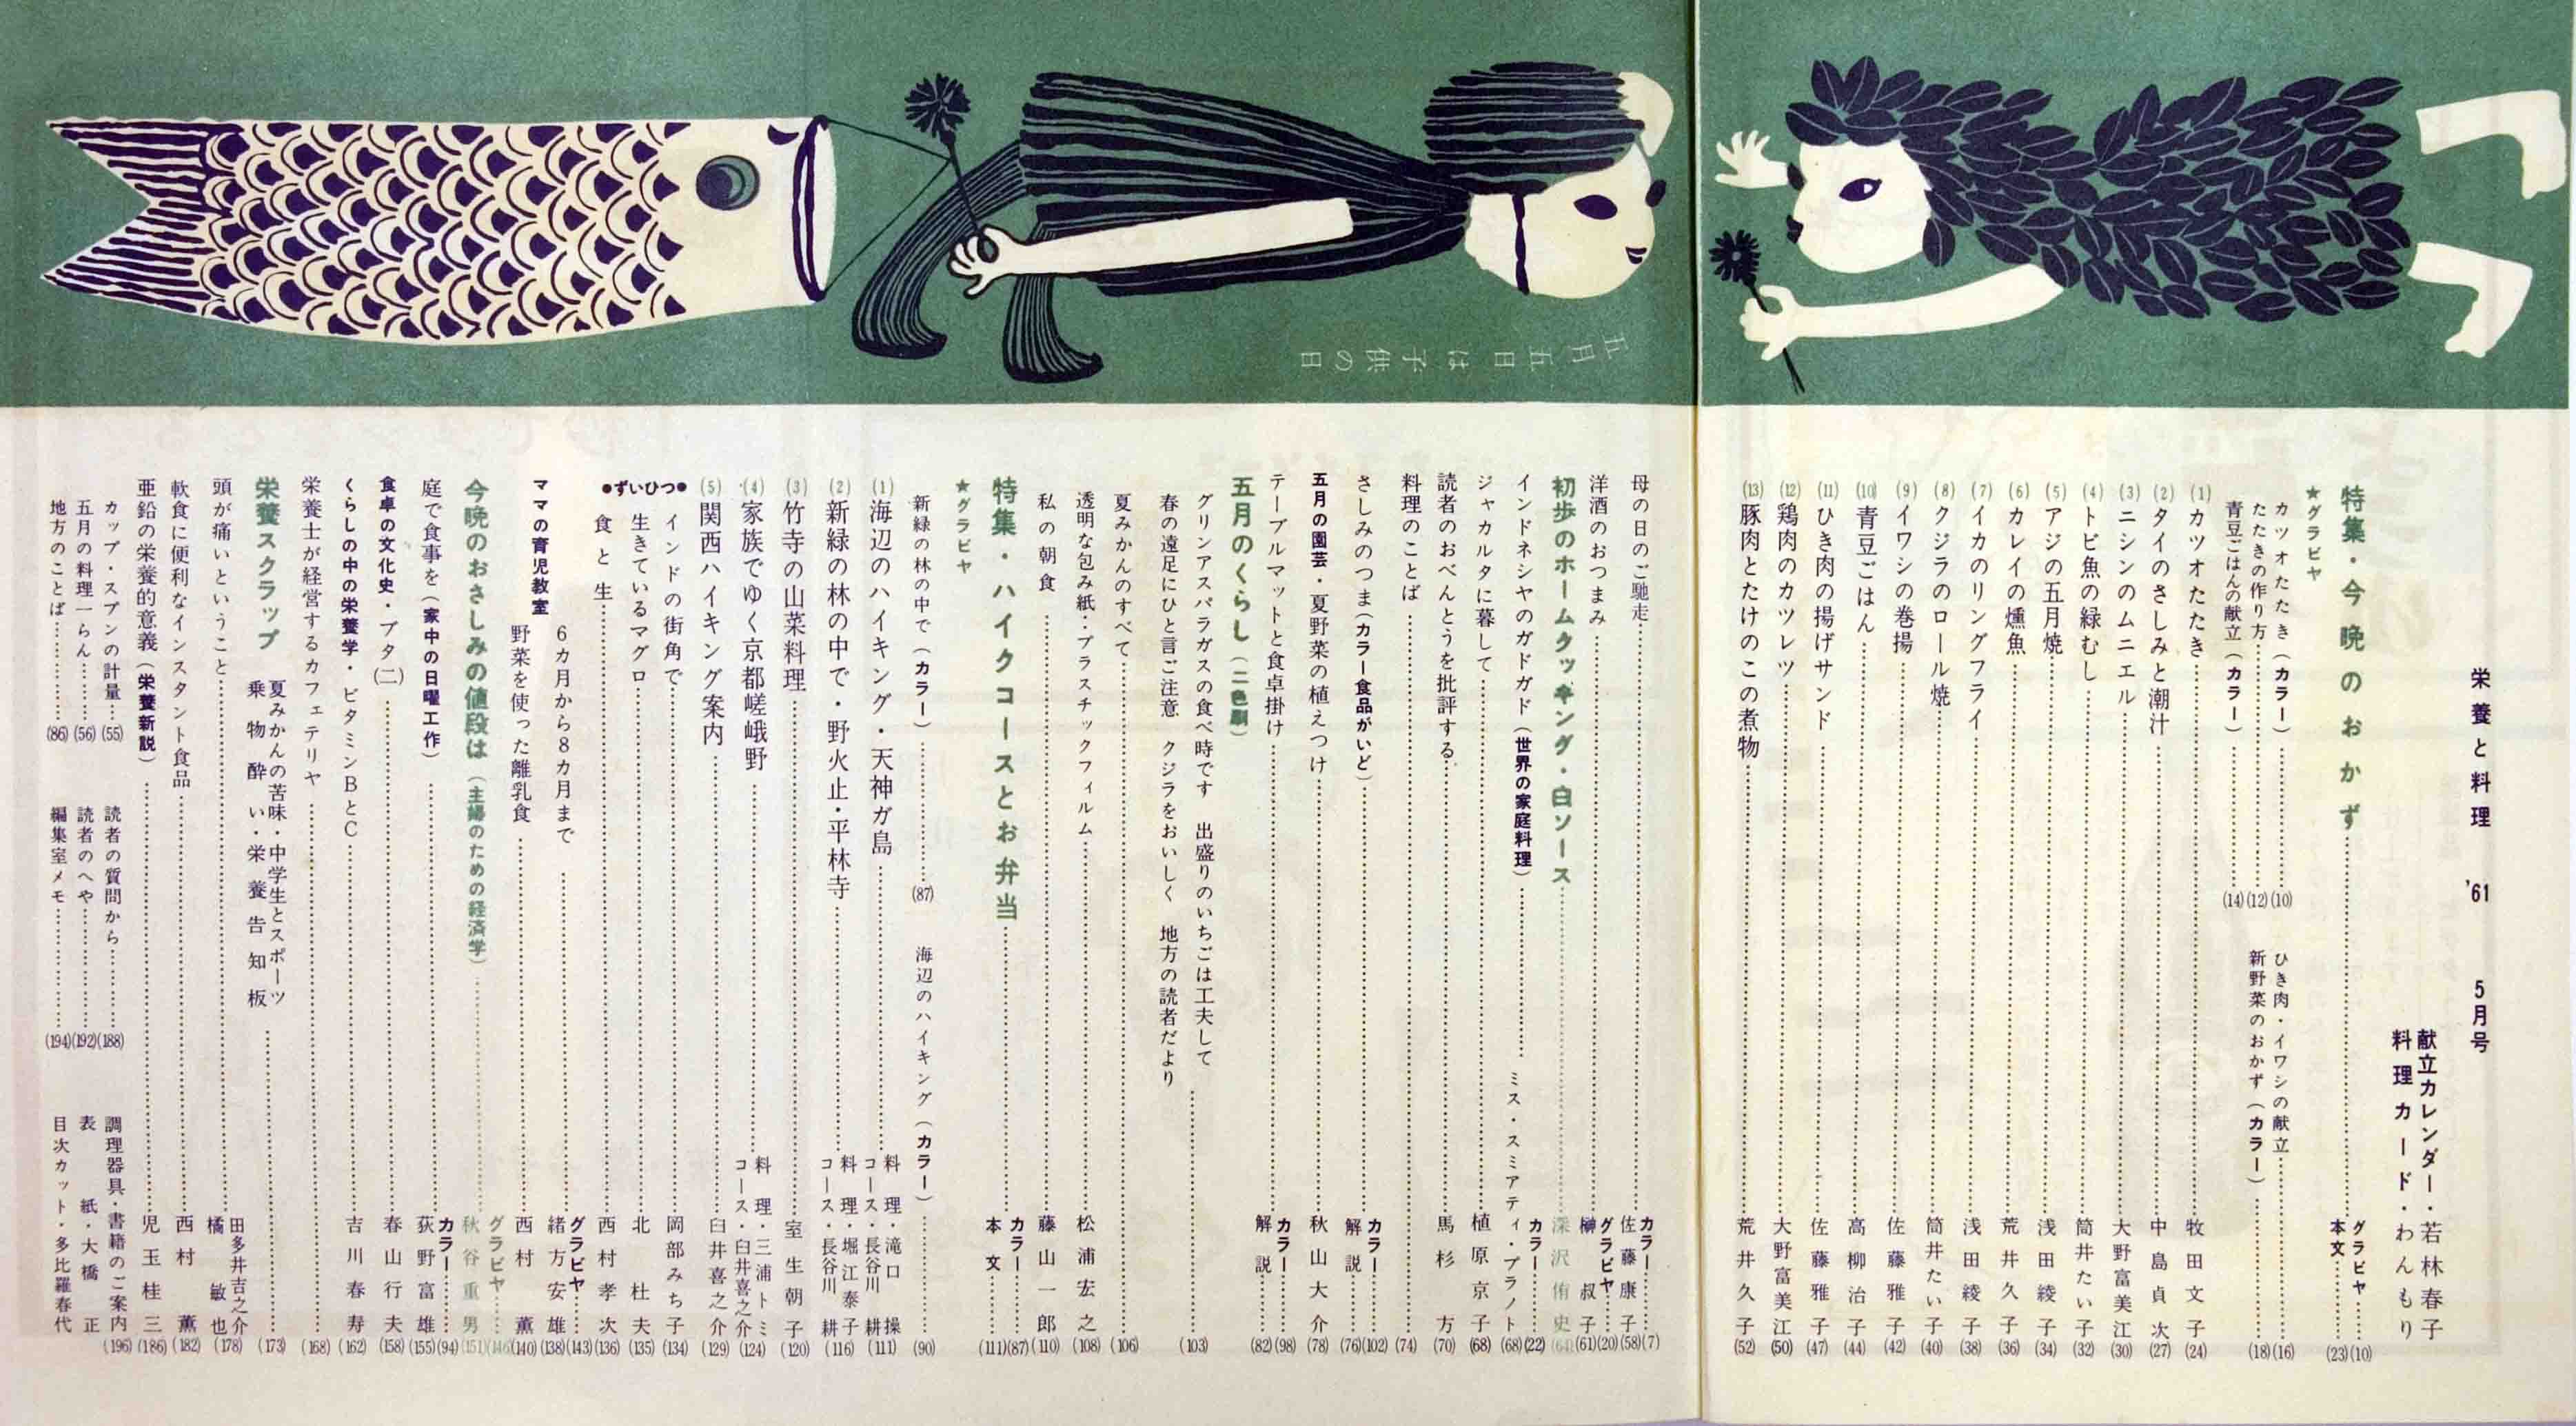 栄養と料理 '61 5月号
献立カレンダー・若林春子
料理カード・わんもり
特集・今晩のおかず グラビヤ (10)
本文 (23)
★グラビヤ
カツオたたき(カラー) (10)
たたきの作り方 (12)
青豆ごはんの献立(カラー) (14)
ひき肉・イワシの献立 (16)
新野菜のおかず(カラー) (18)
(1) カツオたたき 牧田文子 (24)
(2) タイのさしみと潮汁 中島貞次 (27)
(3) ニシンのムニエル 大野富美江 (30)
(4) トビ魚の緑むし 筒井たい子 (32)
(5) アジの五月焼 浅田綾子 (34)
(6) カレイの燻魚 荒井久子 (36)
(7) イカのリングフライ 浅田綾子 (38)
(8) クジラのロール焼 筒井たい子 (40)
(9) イワシの巻揚 佐藤雅子 (42)
(10) 青豆ごはん 高柳治子 (44)
(11) ひき肉の揚げサンド 佐藤雅子 (47)
(12) 鶏肉のカツレツ 大野富美江 (50)
(13) 豚肉とたけのこの煮物 荒井久子 (52)
五月五日は子供の日
母の日のご馳走 カラー (7)
佐藤康子 (58)
洋酒のおつまみ グラビヤ (20)
榊叔子 (61)
初歩のホームクッキング・白ソース 深沢侑史 (64)
インドネシヤのガドガド(世界の家庭料理) カラー (22)
ミス・スミアティ・プラノト (68)
ジャカルタに暮して 植原京子 (68)
読者のおべんとうを批評する 馬杉方 (70)
料理のことば (74)
さしみのつま(カラー食品がいど) カラー (102)
解説 (76)
五月の園芸・夏野菜の植えつけ 秋山大介 (78)
テーブルマットと食卓掛け カラー (98)
解説 (82)
五月のくらし(二色刷)
グリンアスパラガスの食べ時です 出盛りのいちごは工夫して
春の遠足にひと言ご注意 クジラをおいしく 地方の読者だより (103)
夏みかんのすべて (106)
透明な包み紙‥プラスチックフィルム 松浦宏之 (108)
私の朝食 藤山一郎 (110)
特集・ハイクコースとお弁当 カラー (87)
本文 (111)
★グラビヤ
新緑の林の中で(カラー) (87)
海辺のハイキング(カラー) (90)
(1) 海辺のハイキング・天神ガ島 料理・滝口操
コース・長谷川耕 (111)
(2) 新緑の林の中で・野火止・平林寺 料理・堀江泰子
コース・長谷川耕 (116)
(3) 竹寺の山菜料理 室生朝子 (120)
(4) 家族でゆく京都嵯峨野 料理・三浦トミ
コース・臼井喜之介 (124)
(5) 関西ハイキング案内 臼井喜之介 (129)
●ずいひつ●
インドの街角で 岡部みち子 (134)
生きているマグロ 北杜夫 (135)
食と生 西村孝次 (136)
ママの育児教室
6カ月から8カ月まで グラビヤ (143)
緒方安雄 (138)
野菜を使った離乳食 西村薫 (140)
今晩のおさしみの値段は(主婦のための経済学) グラビヤ (146)
秋谷重男 (151)
庭で食事を(家中の日曜工作) カラー (94)
荻野富雄 (155)
食卓の文化史・ブタ(二) 春山行夫 (158)
くらしの中の栄養学・ビタミンBとC 吉川春寿 (162)
栄養士が経営するカフェテリヤ (168)
栄養スクラップ 夏みかんの苦味・中学生とスポーツ
乗物酔い・栄養告知板 (173)
頭が痛いということ 田多井吉之介
橘敏也 (178)
軟食に便利なインスタント食品 西村薫 (182)
亜鉛の栄養的意義(栄養新説) 児玉桂三 (186)
カップ・スプンの計量 (55)
五月の料理一らん (56)
地方のことば (86)
読者の質問から (188)
読者のへや (192)
編集室メモ (194)
調理器具・書籍のご案内 (196)
表紙・大橋正
目次カット・多比羅春代